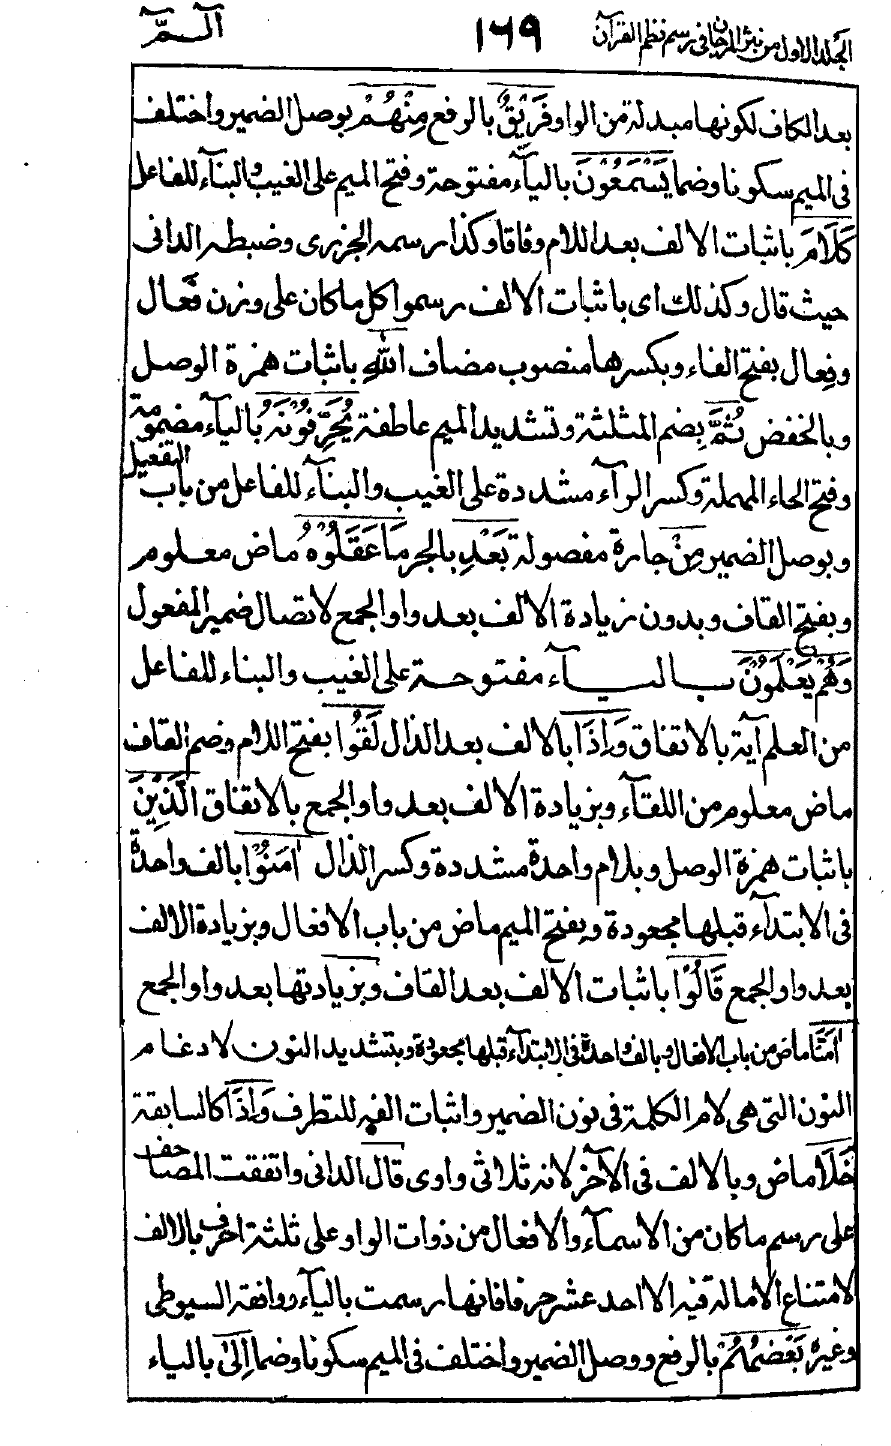 الجلد الاول من نثر المرجان فى رسم نظم القرآن ١٦٩ آلــمّ
بعد الكاف لكونها مبدلة من الواو فَرِيْقٌ بالرفع مِنْهُمْ بوصل الضمير واختلف
فى الميم سكونا وضما يَسْمَعُوْنَ بالياۤء مفتوحة وفتح الميم على الغيب والبناۤء للفاعل
كَلَامَ باثبات الالف بعد اللام وفاقا وكذا رسمه الجزرى وضبطه الدانى
حيث قال وكذلك اى باثبات الالف رسموا كل ماكان على وزن فَعال
وفِعال بفتح الفاء وبكسرها منصوب مضاف اللهِ باثبات همزة الوصل
وبالخفض ثُمَّ بضم المثلثة وتشديد الميم عاطفة يُحَرِّفُوْنَهُ بالياۤء مضمومة
وفتح الحاء المهملة وكسر الراۤء مشددة على الغيب والبناۤء للفاعل من باب التفعيل
وبوصل الضمير مِنْ جارة مفصولة بَعْدِ بالجر مَا عَقَلُوْهُ ماض معلوم
وبفتح القاف وبدون زيادة الالف بعد واو الجمع لاتصال ضمير المفعول
وَهُمْ يَعْلَمُوْنَ بالياۤء مفتوحة على الغيب والبناء للفاعل
من العلم آية بالاتفاق وَاِذَا بالالف بعد الذال لَقُوا بفتح اللام وضم القاف
ماض معلوم من اللقاۤء وبزيادة الالف بعد واو الجمع بالاتفاق الَّذِيْنَ
باثبات همزة الوصل وبلام واحدة مشددة وكسر الذال اٰمَنُوْا بالف واحدة
فى الابتداۤء قبلها مجعودة وبفتح الميم ماض من باب الافعال وبزيادة الالف
بعد واو الجمع قَالُوْا باثبات الالف بعد القاف وبزيادتها بعد واو الجمع
اٰمَنَّا ماض من باب الافعال وبالف واحدة فى الابتداۤء قبلها مجعودة وبتشديد النون لادغام
النون التى هى لام الكلمة فى نون الضمير واثبات الفه للتطرف وَاِذَا كالسابقة
خَلَا ماض وبالالف فى الآخر لانه ثلاثى واوى قال الدانى واتفقت المصاحف
على رسم ماكان من الاسماۤء والافعال من ذوات الواو على ثلثة احرف بالالف
لامتناع الامالة فيه الا احد عشر حرفا فانها رسمت بالياۤء ووافقه السيوطى
وغيره بَعْضُهُمْ بالرفع ووصل الضمير واختلف فى الميم سكونا وضما اِلٰى بالياء